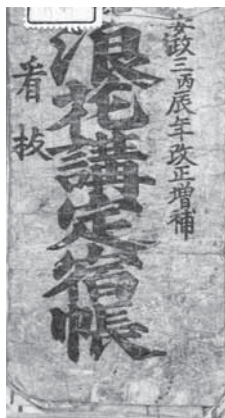 安政三丙辰年改正増補
浪花講定宿帳
看板